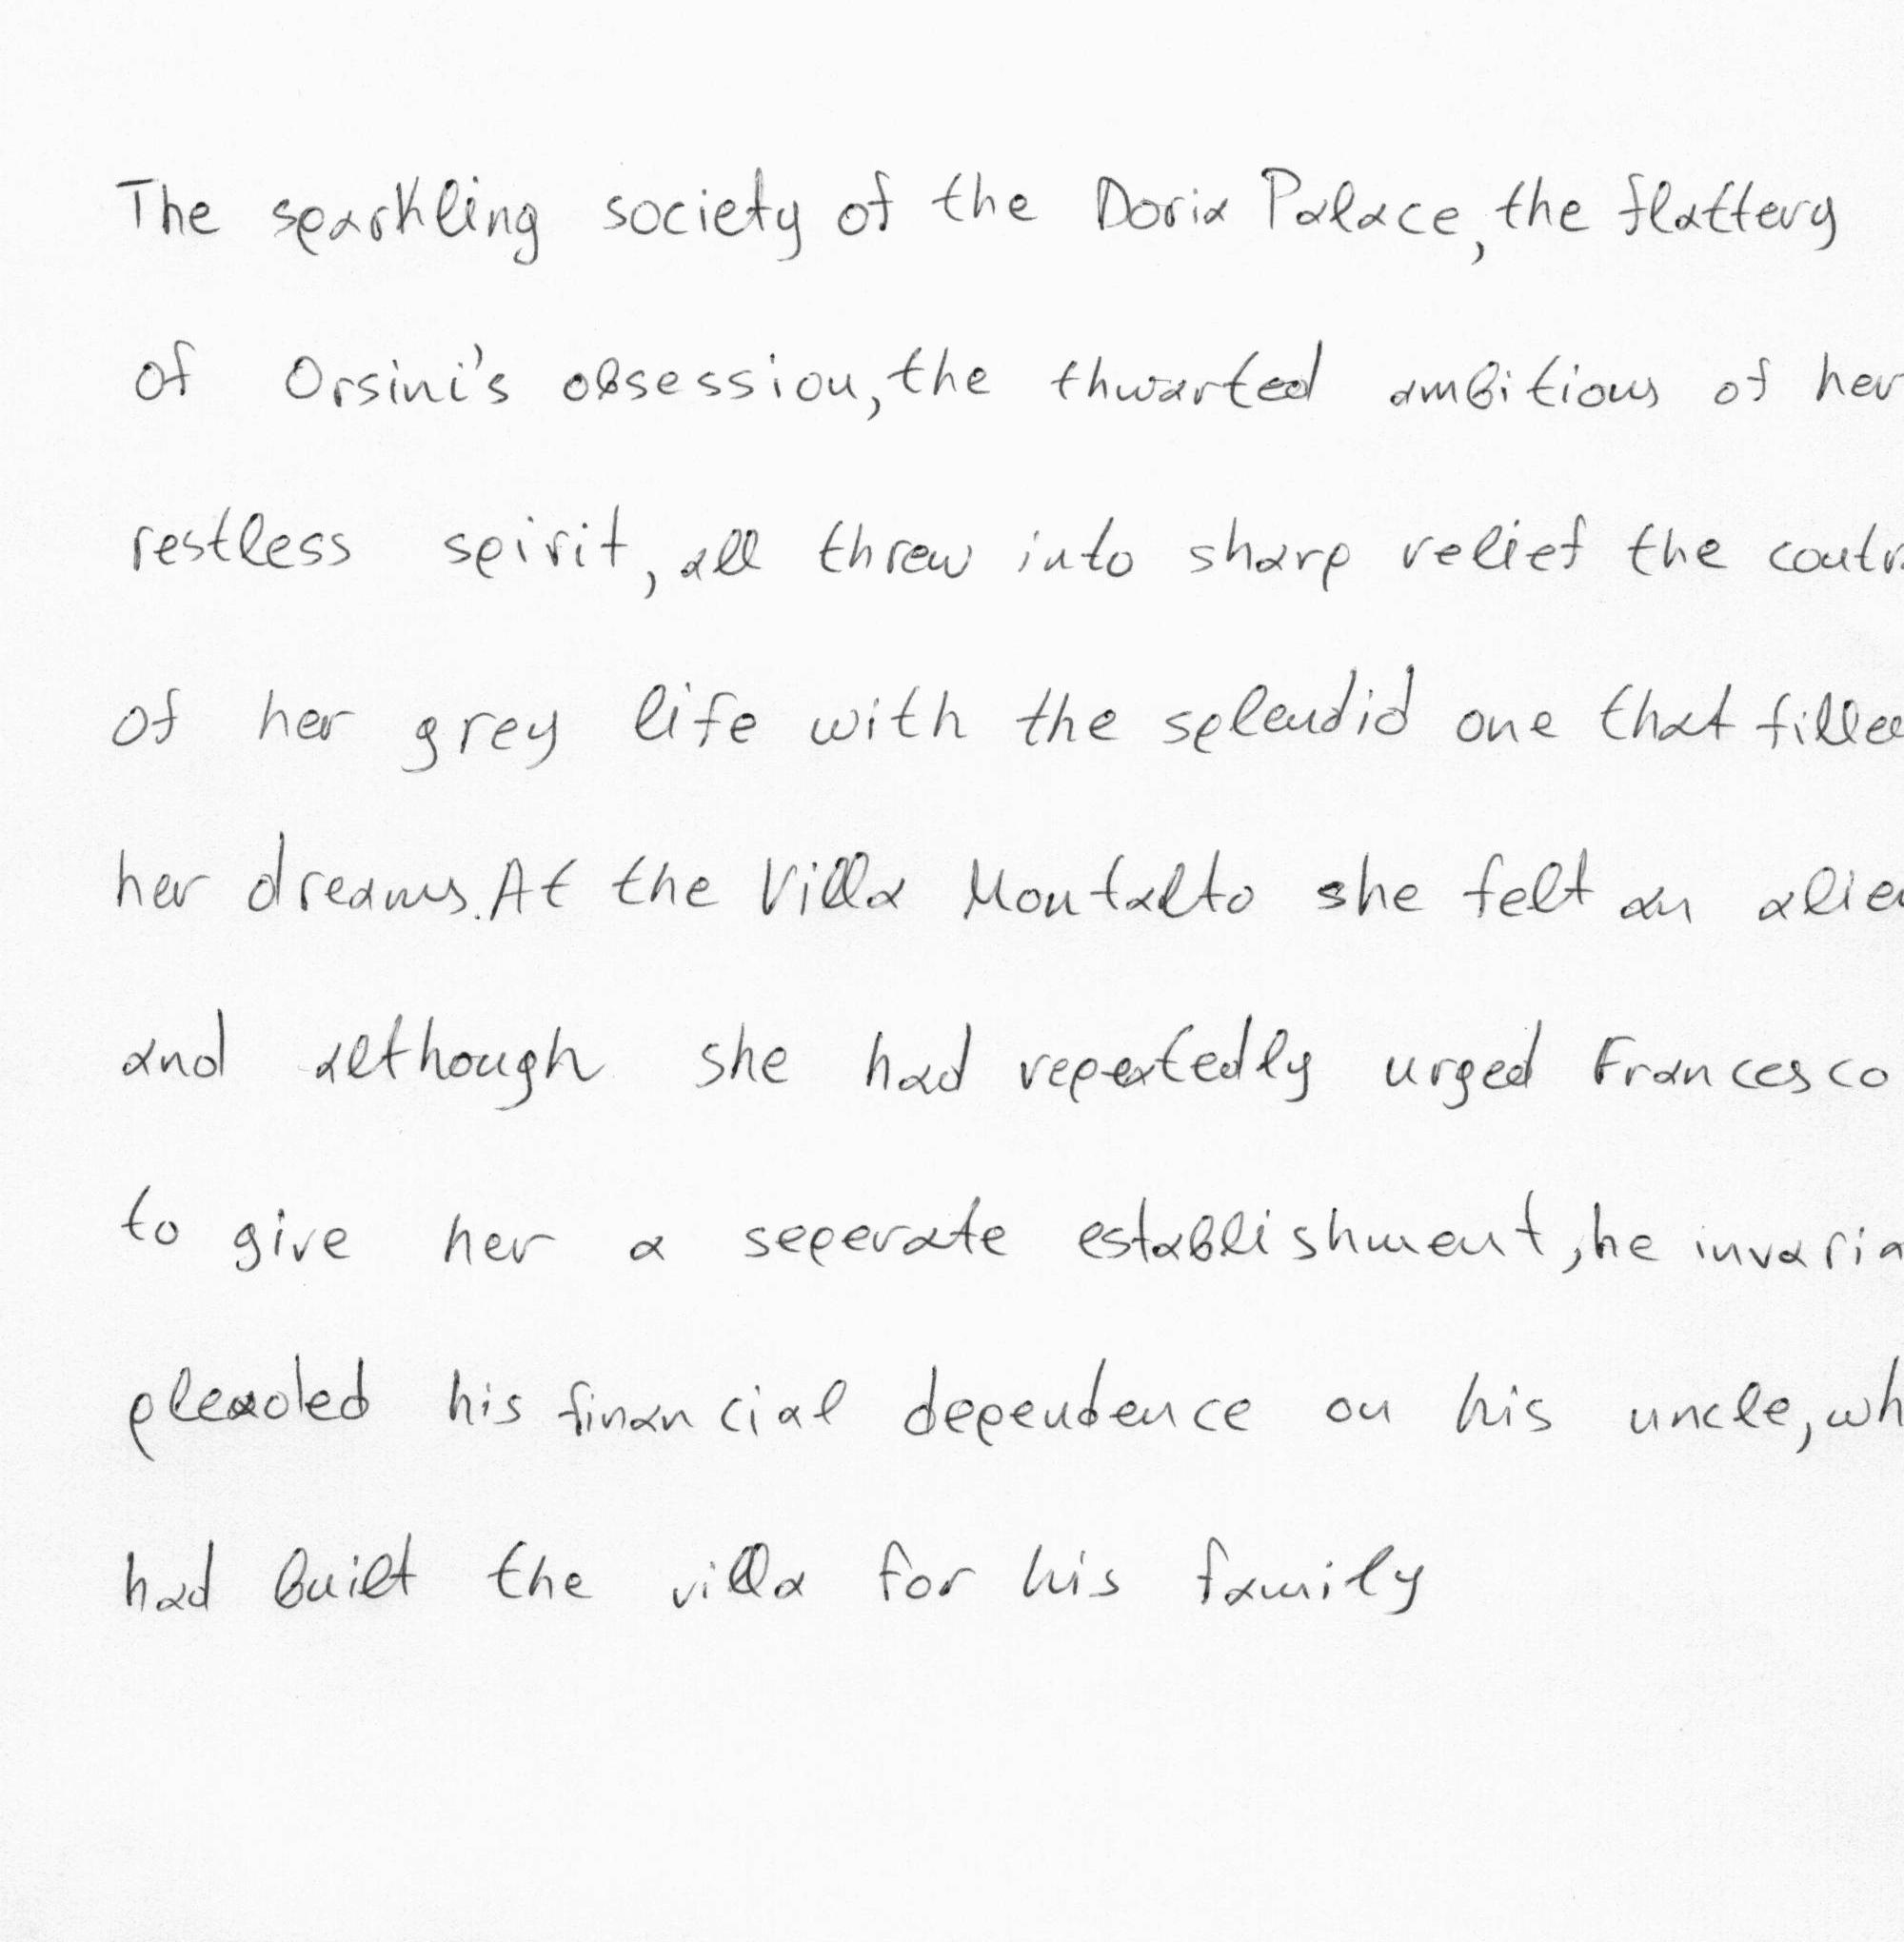 The sparkling society of the Doria Palace, the flattery
of Orsini's obsession, the thwarted ambitions of her
restless spirit, all threw into sharp relief the contr
of her grey life with the splendid one that filled
her dreams. At the Villa Montalto she felt an alien
and although she had repeatedly urged Francesco
to give her a seperate establishment, he invaria
pleaded his financial dependence on his uncle, wh
had built the villa for his family